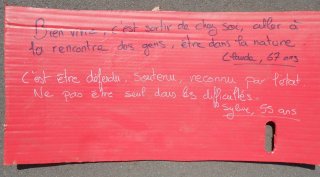 Bien vivre, c'est sortir de chez soi, aller à
la rencontre des gens, être dans la nature.
Claude, 67 ans
C'est être défendu. Soutenu, reconnu par l'état
Ne pas être seul dans les difficultés.
Sylvie, 55 ans